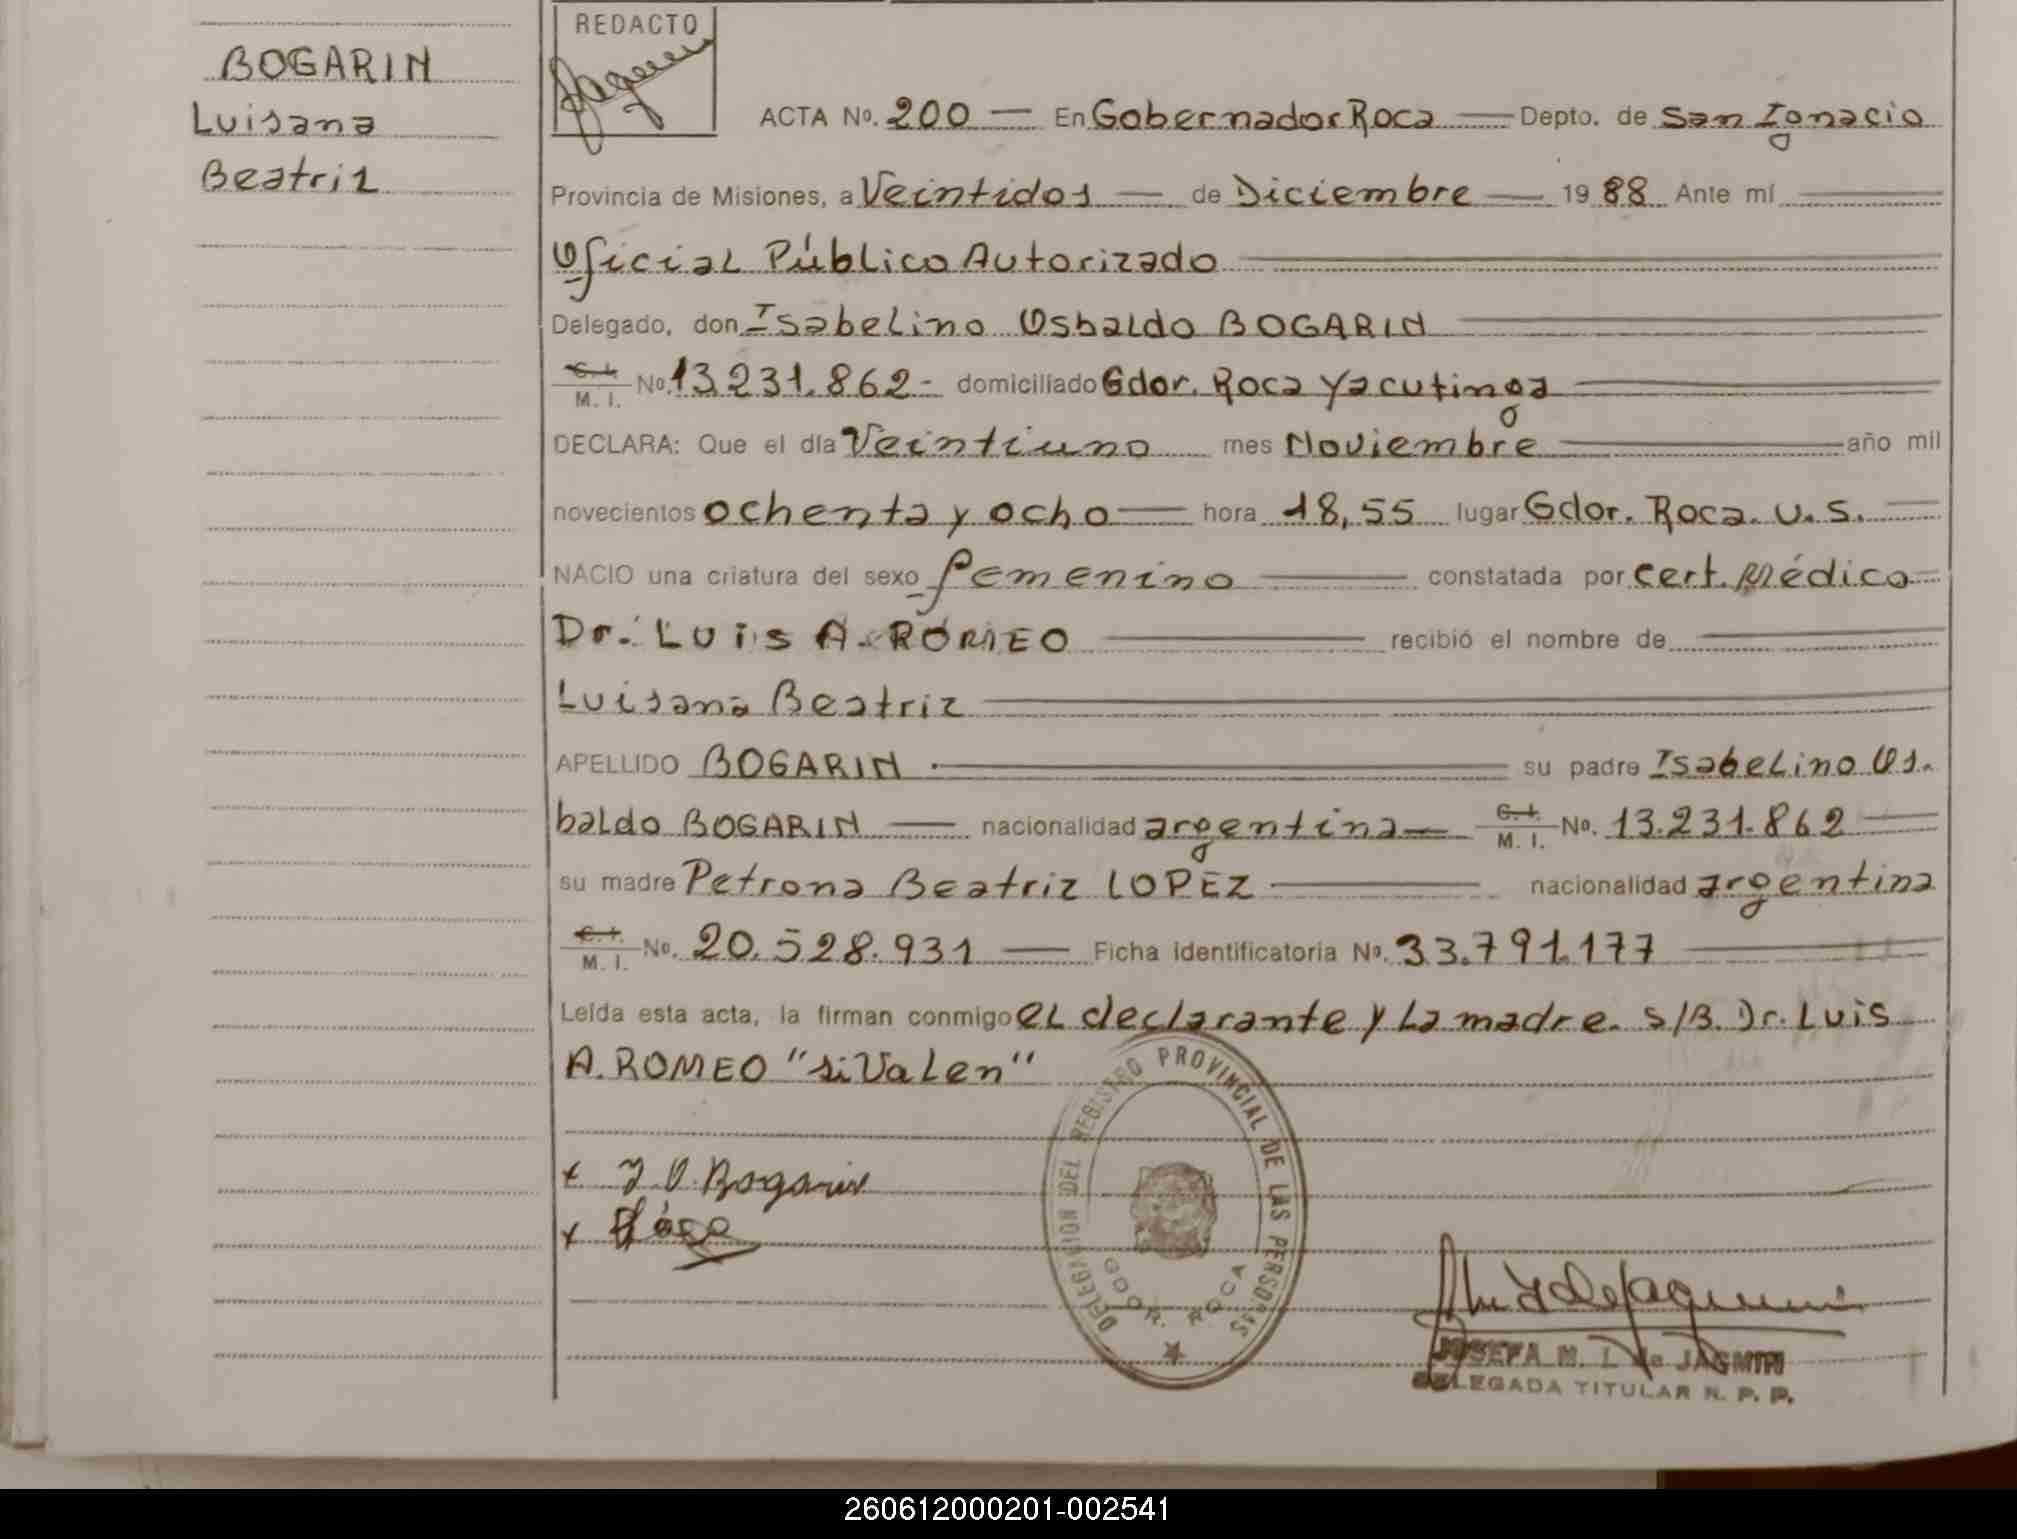 BOGARIN
Luisana
Beatriz
REDACTO
ACTA No. 200 — En Gobernador Roca — Depto. de San Ignacio
Provincia de Misiones, a Veintidos — de Diciembre — 1988 Ante mí
Oficial Público Autorizado
Delegado, don Isabelino Osbaldo BOGARIN
C. I.
M. I. No. 13.231.862- domiciliado Gdor. Roca Yacutinga
DECLARA: Que el día Veintiuno mes Noviembre año mil
novecientos ochenta y ocho — hora 18,55 lugar Gdor. Roca. U.S.
NACIO una criatura del sexo femenino constatada por Cert. Médico
Dr. LUIS A. ROMEO recibió el nombre de
Luisana Beatriz
APELLIDO BOGARIN su padre Isabelino Os.
baldo BOGARIN — nacionalidad argentina — C. I.
M. I. No. 13.231.862
su madre Petrona Beatriz LOPEZ nacionalidad argentina
C. I.
M. I. No. 20.528.931 — Ficha identificatoria No. 33.791.177
Leída esta acta, la firman conmigo el declarante y La madre. S/B. Dr. Luis
A. ROMEO "si Valen"
DELEGACION DEL REGISTRO PROVINCIAL DE LAS PERSONAS
GDOR. ROCA
x J O. Bogarin
x
JOSEFA M. I. de JAGMIN
DELEGADA TITULAR R. P. P.
260612000201-002541